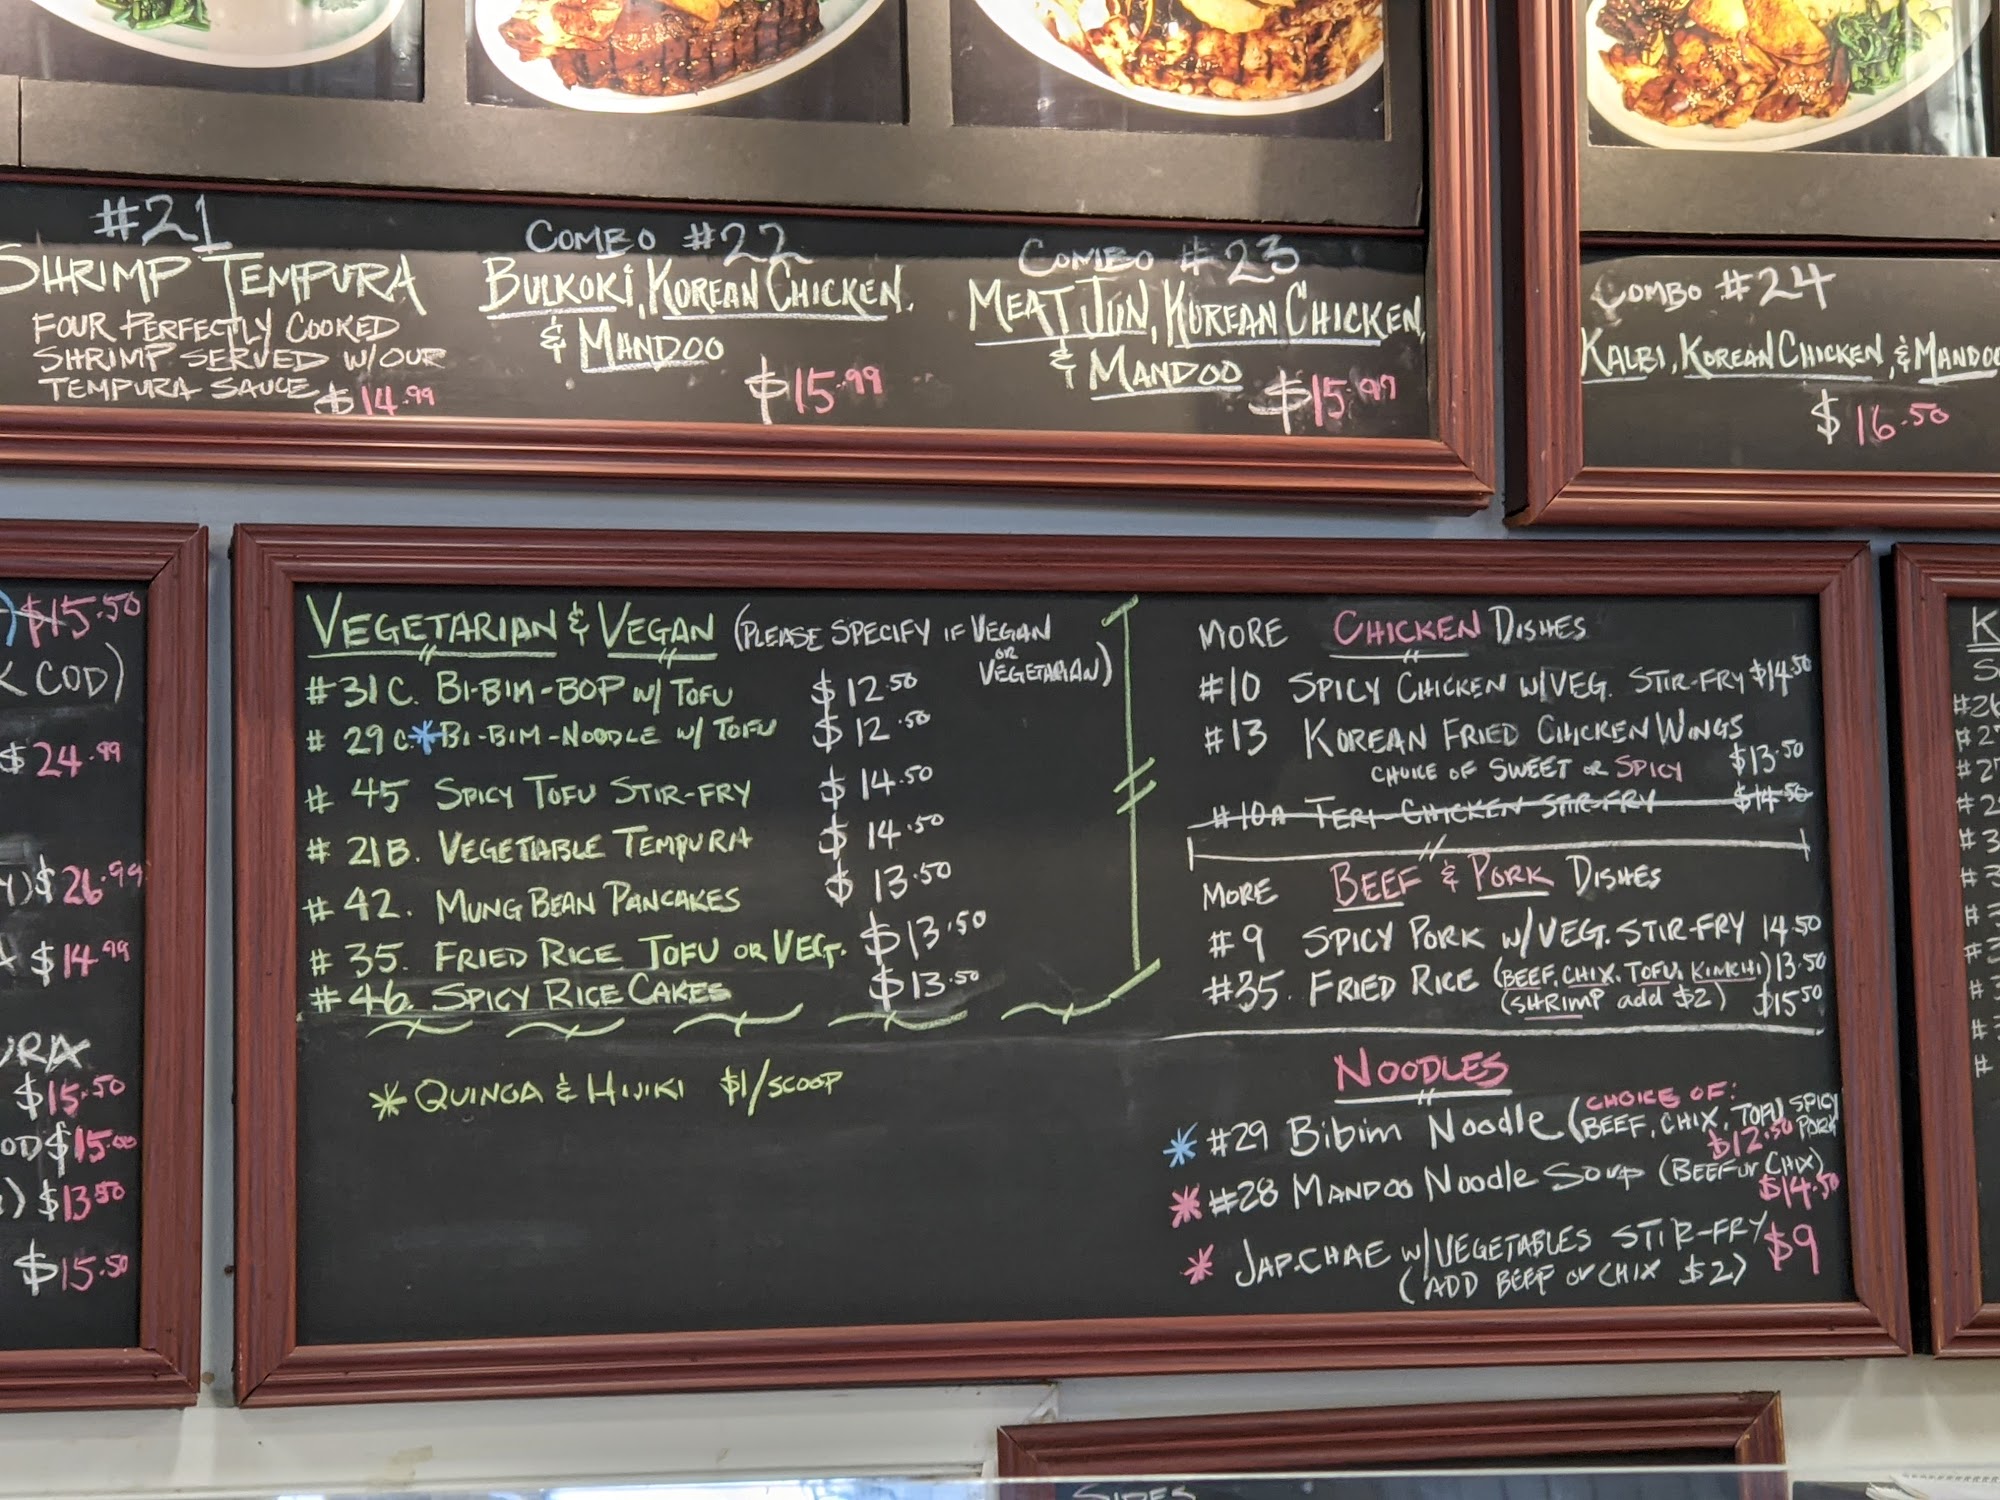 #21
SHRIMP TEMPURA
FOUR PERFECTLY COOKED
SHRIMP SERVED W/OUR
TEMPURA SAUCE $14.99
COMBO #22
BULKOKI, KOREAN CHICKEN,
& MANDOO
$15.99
COMBO #23
MEAT JUN, KOREAN CHICKEN,
& MANDOO
$15.99
COMBO #24
KALBI, KOREAN CHICKEN, & MANDOO
$16.50
$15.50
COD)
$24.99
$26.99
$14.99
$15.50
$15.00
$13.50
$15.50
VEGETARIAN & VEGAN (PLEASE SPECIFY IF VEGAN
OR
VEGETARIAN)
#31C. BI-BIM-BOP W/ TOFU $12.50
#29C.* BI-BIM-NOODLE W/ TOFU $12.50
#45 SPICY TOFU STIR-FRY $14.50
#21B. VEGETABLE TEMPURA $14.50
#42. MUNG BEAN PANCAKES $13.50
#35. FRIED RICE TOFU OR VEGT. $13.50
#46. SPICY RICE CAKES $13.50
* QUINOA & HIJIKI $1/SCOOP
MORE CHICKEN DISHES
#10 SPICY CHICKEN W/VEG. STIR-FRY $14.50
#13 KOREAN FRIED CHICKEN WINGS
CHOICE OF SWEET OR SPICY $13.50
#10A TERI-CHICKEN STIR-FRY $14.50
MORE BEEF & PORK DISHES
#9 SPICY PORK W/VEGT. STIR-FRY 14.50
#35. FRIED RICE (BEEF, CHIX, TOFU, KIMCHI) 13.50
(SHRIMP add $2) $15.50
NOODLES
CHOICE OF:
* #29 Bibim Noodle (BEEF, CHIX, TOFU, SPICY
PORK
$12.50
* #28 MANDOO NOODLE SOUP (BEEF or CHIX)
$14.50
* JAP-CHAE W/VEGETABLES STIR-FRY $9
(ADD BEEF or CHIX $2)
SIDES